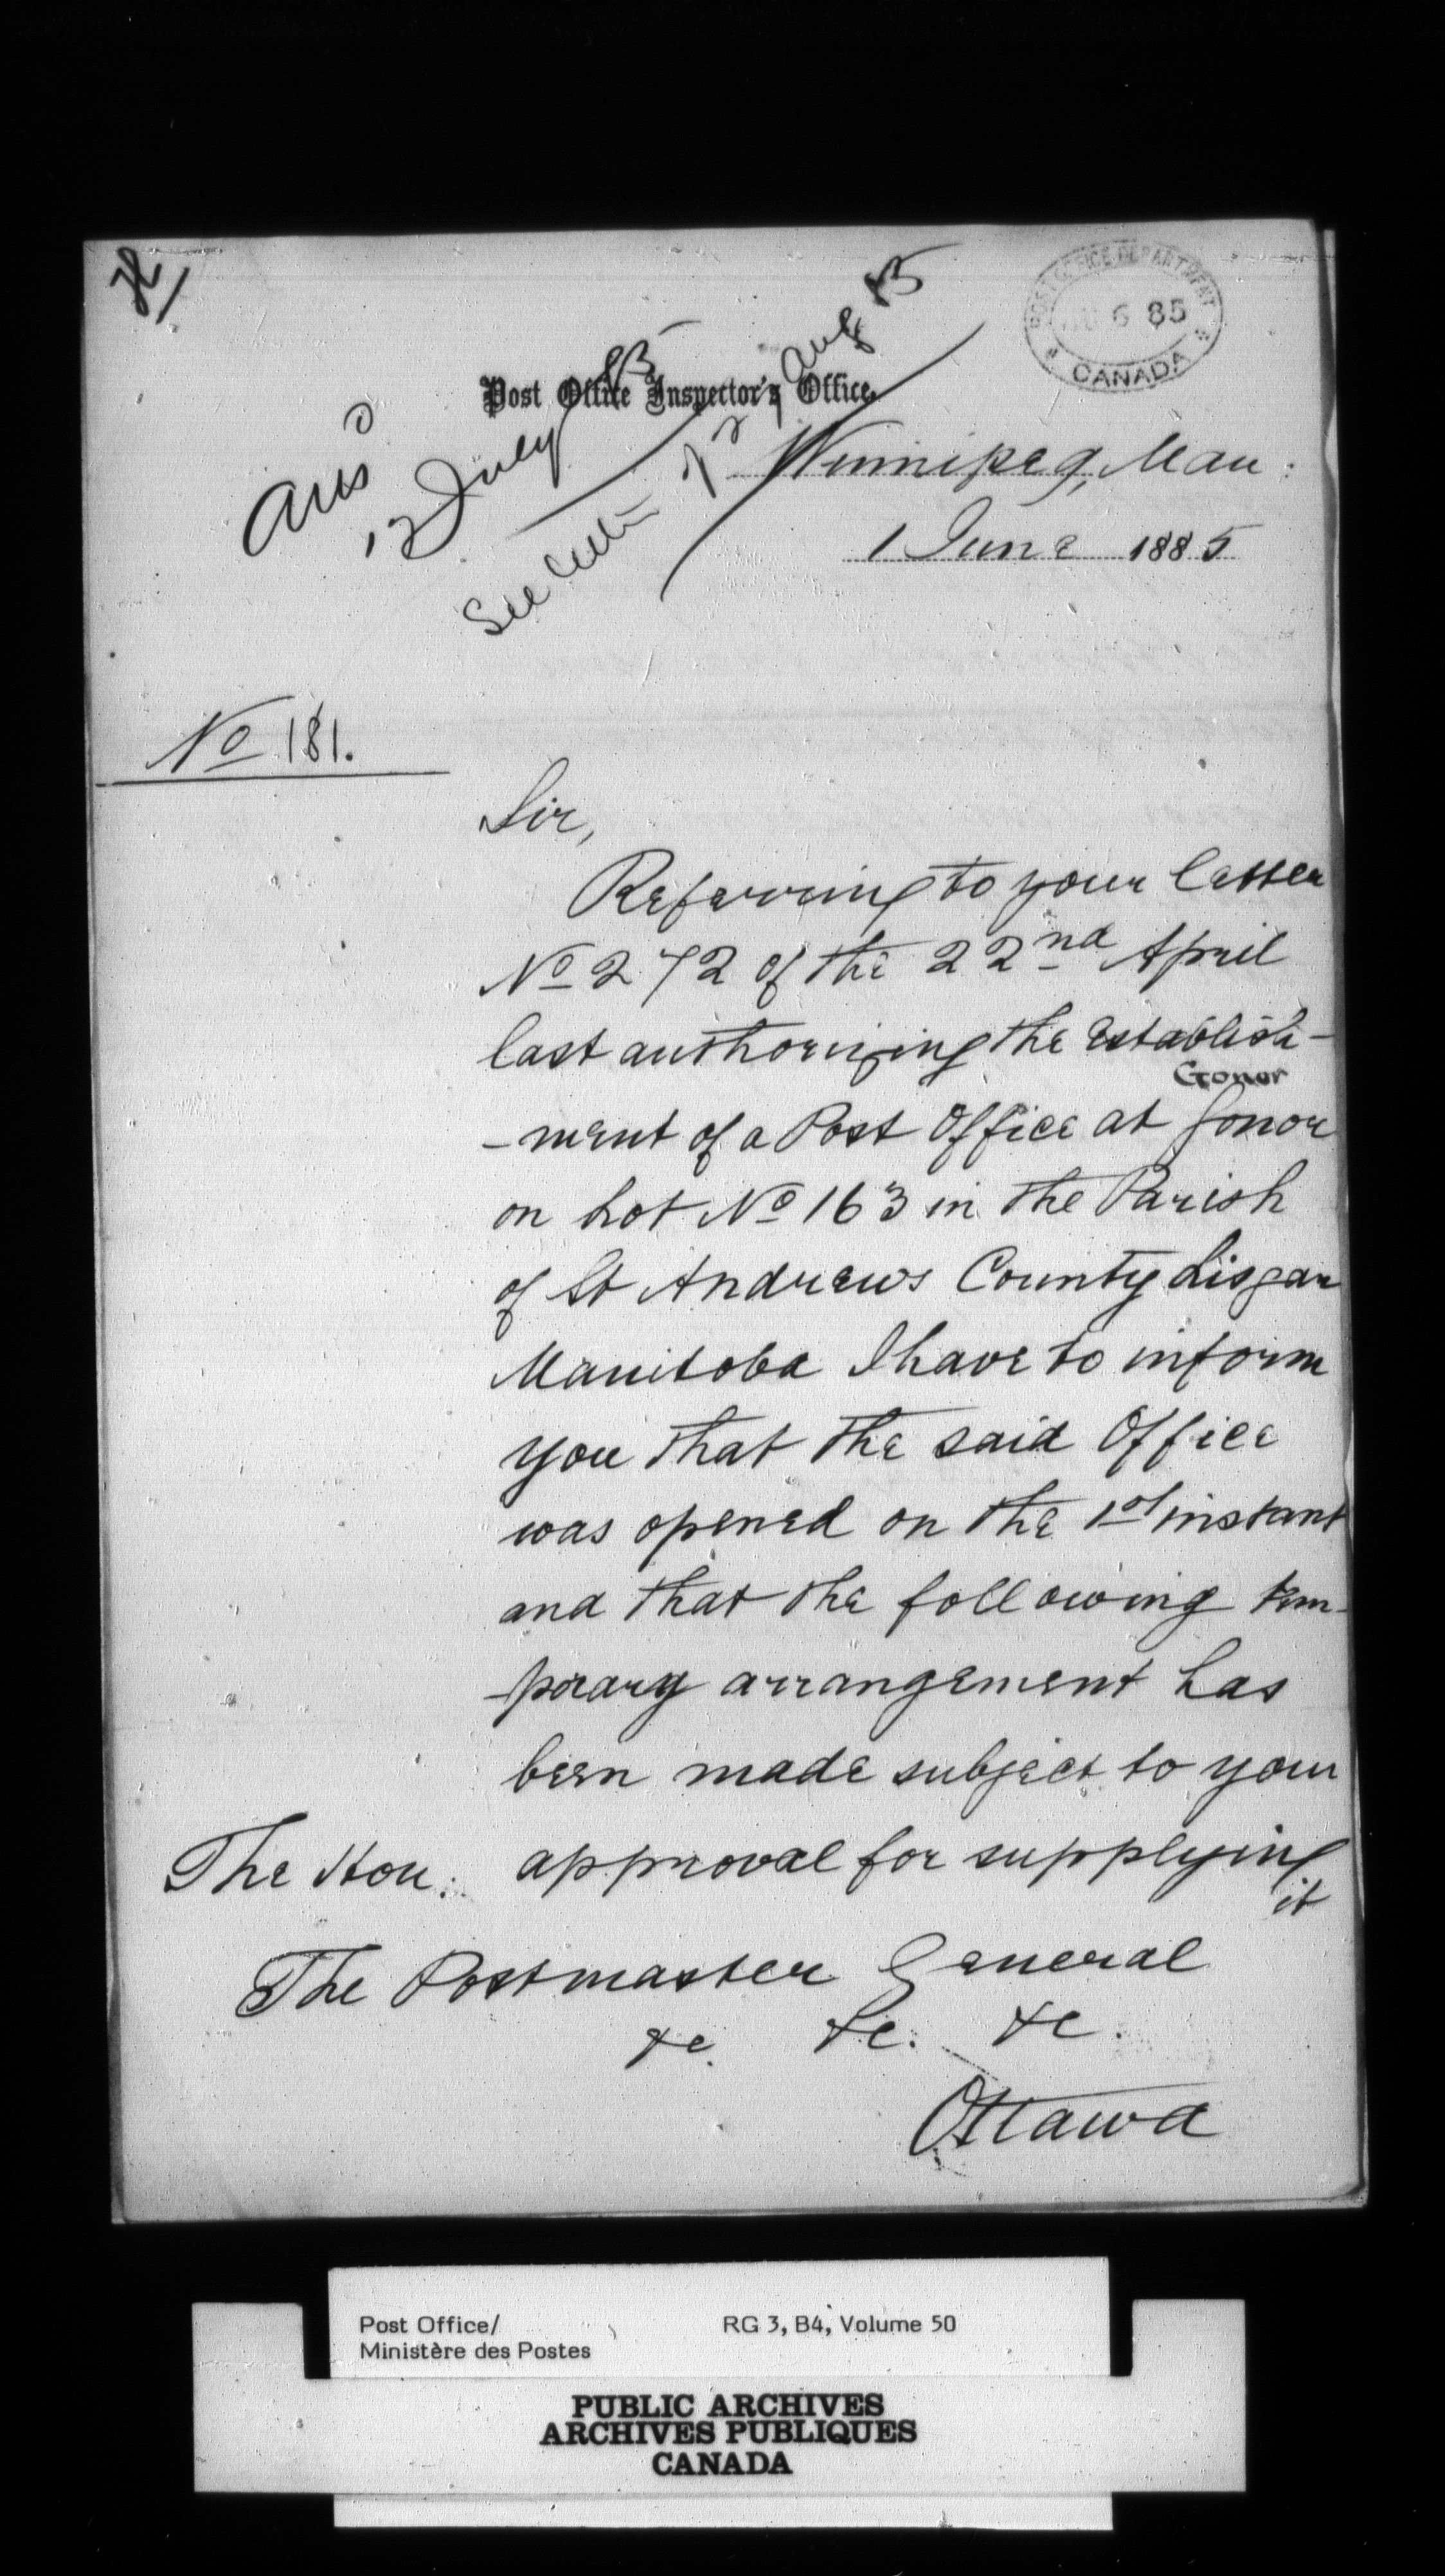 POST OFFICE DEPARTMENT
6 85
CANADA
Post Office Inspector's Office,
Ansd
12 July 85
See Aug 85
Winnipeg, Man:
1 June 1885
No 181.
Sir,
Referring to your letter
No 272 of the 22nd April
last authorizing the establish-
Gonor
-ment of a Post Office at Gonor
on Lot No 163 in the Parish
of St Andrews County Lisgar
Manitoba I have to inform
you that the said Office
was opened on the 1st instant
and that the following tem-
-porary arrangement has
been made subject to your
approval for supplying
it
The Hon:
The Postmaster General
&c. &c. &c.
Ottawa
Post Office/ RG 3, B4, Volume 50
Ministère des Postes
PUBLIC ARCHIVES
ARCHIVES PUBLIQUES
CANADA